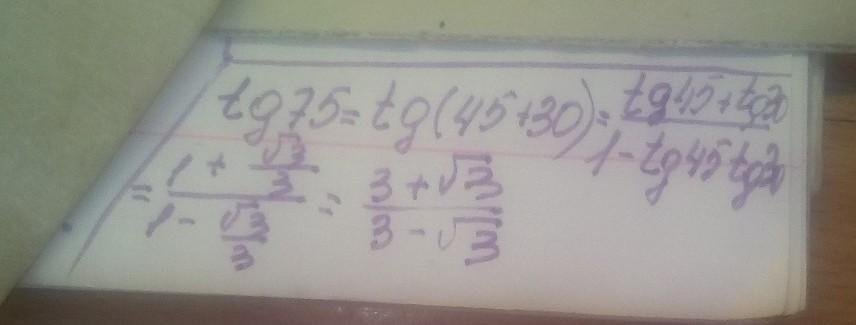 tg75=tg(45+30)=(tg45+tg30)/(1-tg45tg30)
=(1+√3/3)/(1-√3/3)=(3+√3)/(3-√3)